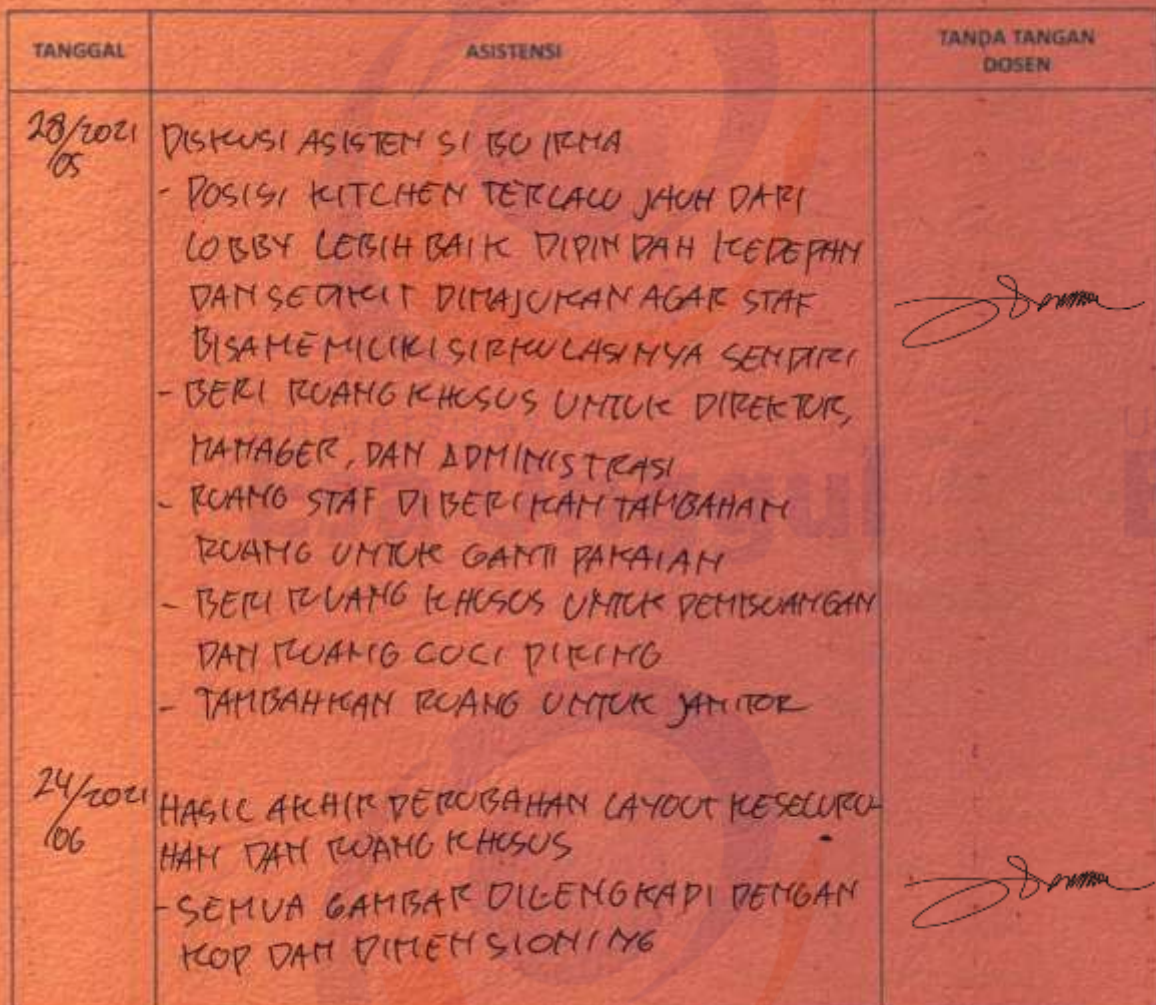 TANGGAL
ASISTENSI
TANDA TANGAN
DOSEN
28/2021
/05
DISKUSI ASISTENSI BU IRMA
- POSISI KITCHEN TERLALU JAUH DARI
LOBBY LEBIH BAIK DIPINDAH KEDEPAN
DAN SEDIKIT DIMAJUKAN AGAR STAF
BISA MEMILIKI SIRKULASINYA SENDIRI
- BERI RUANG KHUSUS UNTUK DIREKTUR,
MANAGER, DAN ADMINISTRASI
- RUANG STAF DIBERIKAN TAMBAHAN
RUANG UNTUK GANTI PAKAIAN
- BERI RUANG KHUSUS UNTUK PEMBUANGAN
DAN RUANG CUCI PIRING
- TAMBAHKAN RUANG UNTUK JANITOR
24/2021
/06
HASIL AKHIR PERUBAHAN LAYOUT KESELURU-
HAN DAN RUANG KHUSUS
- SEMUA GAMBAR DILENGKAPI DENGAN
KOP DAN DIMENSIONING